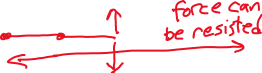 force can
be resisted